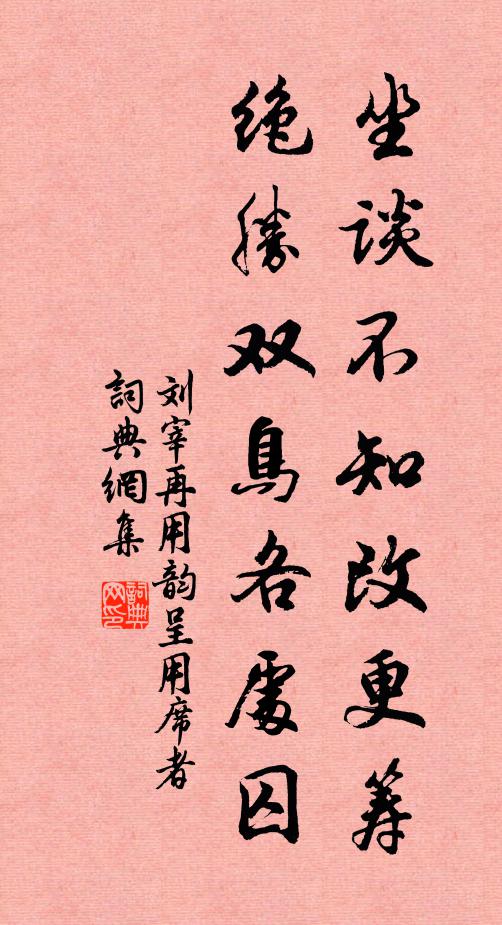 坐談不知改更筹
绝勝双鳥各處囚
刘宰再用韵呈用席者
詞典網集
詞典网印